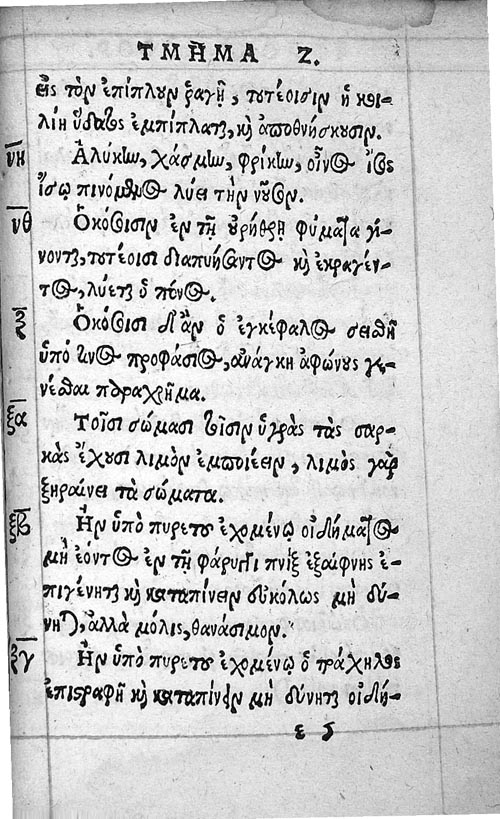 ΤΜΗΜΑ Ζ.
εἰς τὸν ἐπίπλουν ῥαγῇ, τουτέοισιν ἡ κοι-
λίη ὕδατος ἐμπίπλαται, καὶ ἀποθνήσκουσιν.
νη Ἀλύκῳ, χάσμῳ, φρίκῳ, οἶνος ἴσος
ἴσῳ πινόμενος λύει τὴν νοῦσον.
νθ Ὁκόσοισιν ἐν τῇ οὐρήθρῃ φύματα γί-
νονται, τουτέοισι διαπυήσαντος καὶ ἐκραγέν-
τος, λύεται ὁ πόνος.
ξ Ὁκόσοισι δ' ἂν ὁ ἐγκέφαλος σεισθῇ
ὑπό τινος προφάσιος, ἀνάγκη ἀφώνους γε-
νέσθαι παραχρῆμα.
ξα Τοῖσι σώμασι τοῖσιν ὑγρὰς τὰς σαρ-
κὰς ἔχουσι λιμὸν ἐμποιέειν, λιμὸς γὰρ
ξηραίνει τὰ σώματα.
ξβ Ἢν ὑπὸ πυρετοῦ ἐχομένῳ οἰδήματος
μὴ ἐόντος ἐν τῇ φάρυγγι πνὶξ ἐξαίφνης ἐ-
πιγένηται καὶ καταπίνειν εὐκόλως μὴ δύ-
νηται, ἀλλὰ μόλις, θανάσιμον.
ξγ Ἢν ὑπὸ πυρετοῦ ἐχομένῳ ὁ τράχηλος
ἐπιστραφῇ καὶ καταπίνειν μὴ δύνηται οἰδή-
ε 5